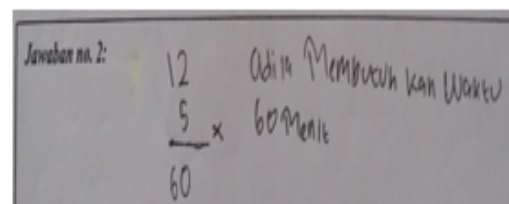 Jawaban no. 2:
12
5 ×
60
adila Membutuh kan Waktu
60 Menit